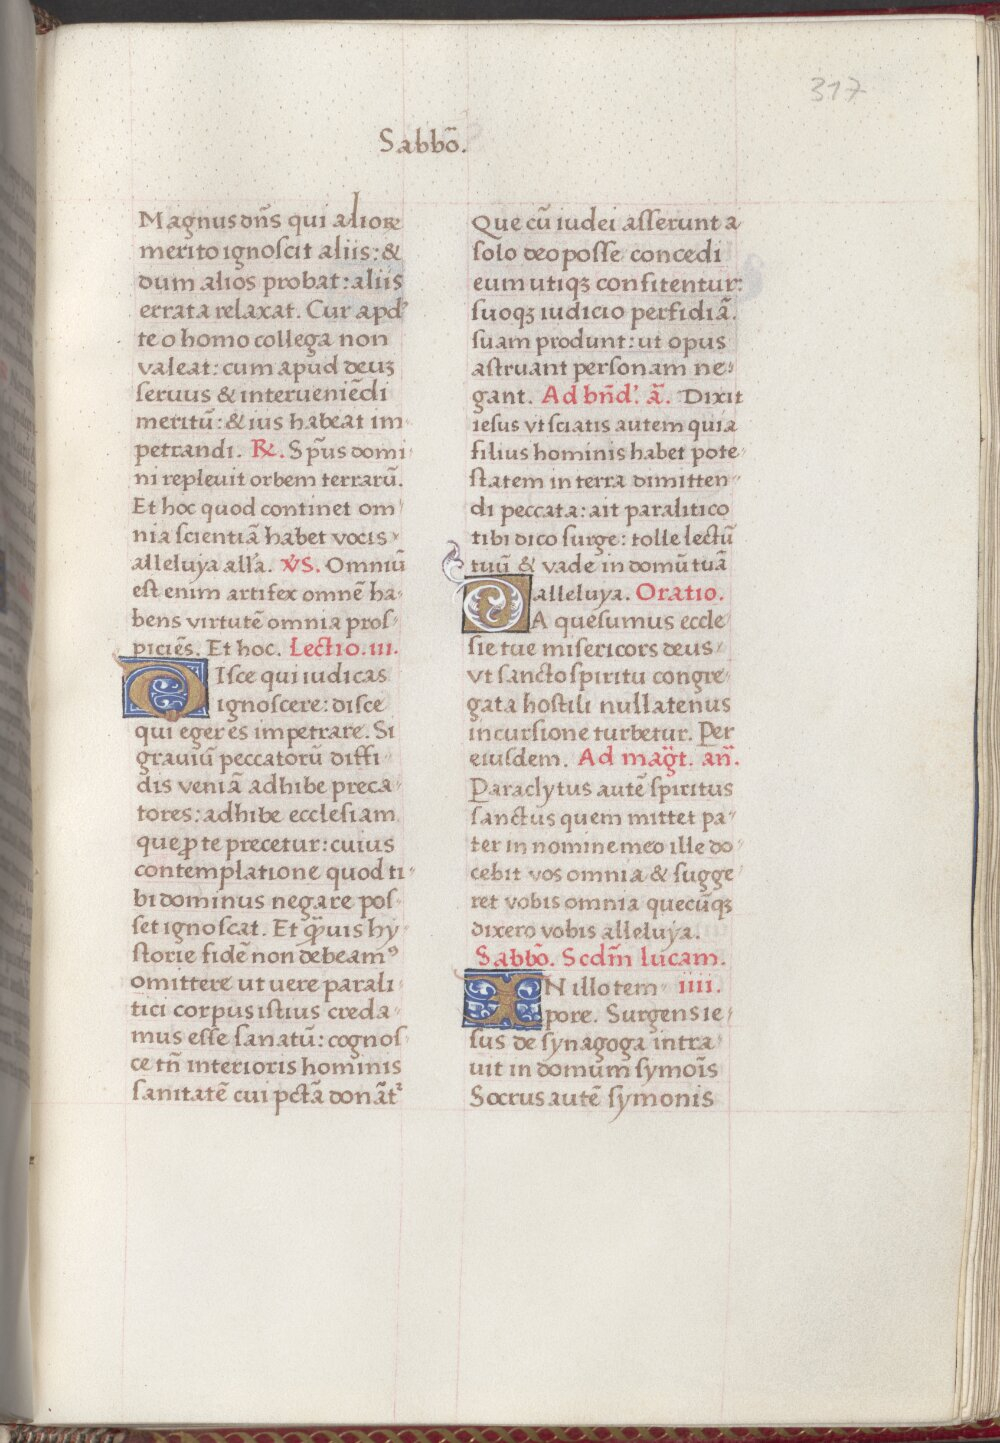 317
Sabbō.
Magnus dn̄s qui alioꝝ
merito ignoscit aliis: &
dum alios probat: aliis
errata relaxat. Cur apd'
te o homo collega non
valeat: cum apud deuʒ
seruus & interueniēdi
meritū: & ius habeat im
petrandi. ℟. Sp̄us domi
ni repleuit orbem terrarū.
Et hoc quod continet om
nia scientiā habet vocis
alleluya all'a. v̓s. Omniū
est enim artifex omnē ha
bens virtutē omnia pros
piciēs. Et hoc. Lectio. iii.
Disce qui iudicas
ignoscere: disce
qui eger es impetrare. Si
grauiū peccatorū diffi
dis veniā adhibe preca
tores: adhibe ecclesiam
que ꝓ te precetur: cuius
contemplatione quod ti
bi dominus negare pos
set ignoscat. Et qꝫuis hy
storie fidē non debeamꝰ
omittere ut uere parali
tici corpus istius creda
mus esse sanatū: cognos
ce tn̄ interioris hominis
sanitatē cui pctā donāt᷑
Que cū iudei asserunt a
solo deo posse concedi
eum utiqꝫ confitentur:
suoqꝫ iudicio perfidiā.
suam produnt: ut opus
astruant personam ne
gant. Ad bn̄d'. ā. Dixit
iesus vt sciatis autem quia
filius hominis habet pote
statem in terra dimitten
di peccata: ait paralitico
tibi dico surge: tolle lectū
tuū & vade in domū tuā
alleluya. Oratio.
DA quesumus eccle
sie tue misericors deus
vt sancto spiritu congre
gata hostili nullatenus
incursione turbetur. Per
eiusdem. Ad mag̅t. an̄.
Paraclytus autē spiritus
sanctus quem mittet pa
ter in nomine meo ille do
cebit vos omnia & sugge
ret vobis omnia quecūqꝫ
dixero vobis alleluya.
Sabbō. Scdm̄ lucam.
IN illo tem iiii.
pore. Surgens ie
sus de synagoga intra
uit in domum symoīs
Socrus autē symonis